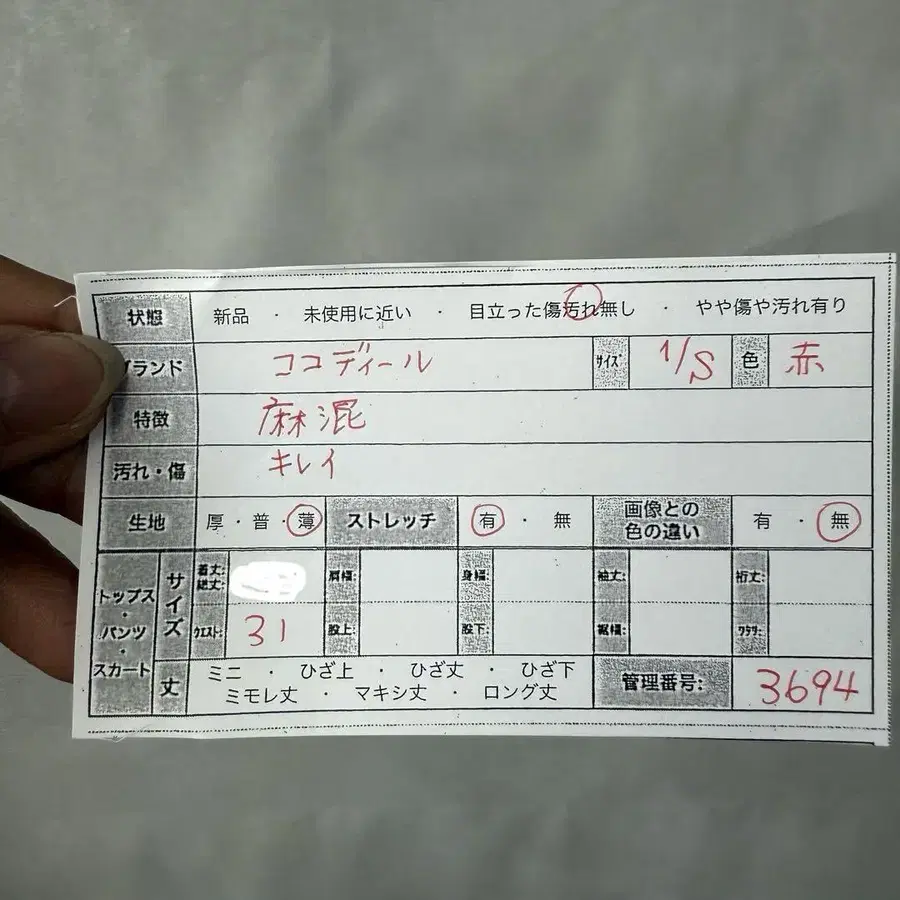 状態 新品 ・ 未使用に近い ・ 目立った傷汚れ無し ・ やや傷や汚れ有り
ブランド ココディール サイズ 1/S 色 赤
特徴 麻混
汚れ・傷 キレイ
生地 厚・普・薄 ストレッチ 有・無 画像との色の違い 有・無
トップス・パンツ・スカート サイズ 着丈:総丈: 肩幅: 身幅: 袖丈: 裄丈:
ウエスト: 31 股上: 股下: 裾幅: ワタリ:
丈 ミニ ・ ひざ上 ・ ひざ丈 ・ ひざ下
ミモレ丈 ・ マキシ丈 ・ ロング丈 管理番号: 3694